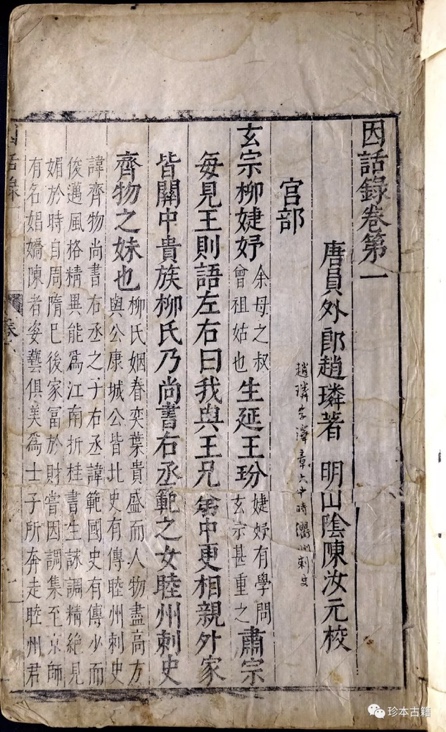 因話錄卷第一
唐員外郎趙璘著 明山陰陳汝元校
趙璘字澤章大中時衢州刺史
宮部
玄宗柳婕妤余母之叔曾祖姑也生延王玢婕妤有學問玄宗甚重之肅宗
每見王則語左右曰我與王兄弟中更相親外家
皆關中貴族柳氏乃尚書右丞範之女睦州刺史
齊物之妹也柳氏姻眷奕葉貴盛而人物盡高方
輿公康城公皆北史有傳睦州刺史
諱齊物尚書右丞之子右丞諱範國史有傳少而
俊邁風格精異能爲江南折桂書生詠調精絶見
媚於時自周隋已後家富於財嘗因調集至京師
有名娼嬌陳者姿藝俱美爲士子所奔走睦州君
因話錄
珍本古籍